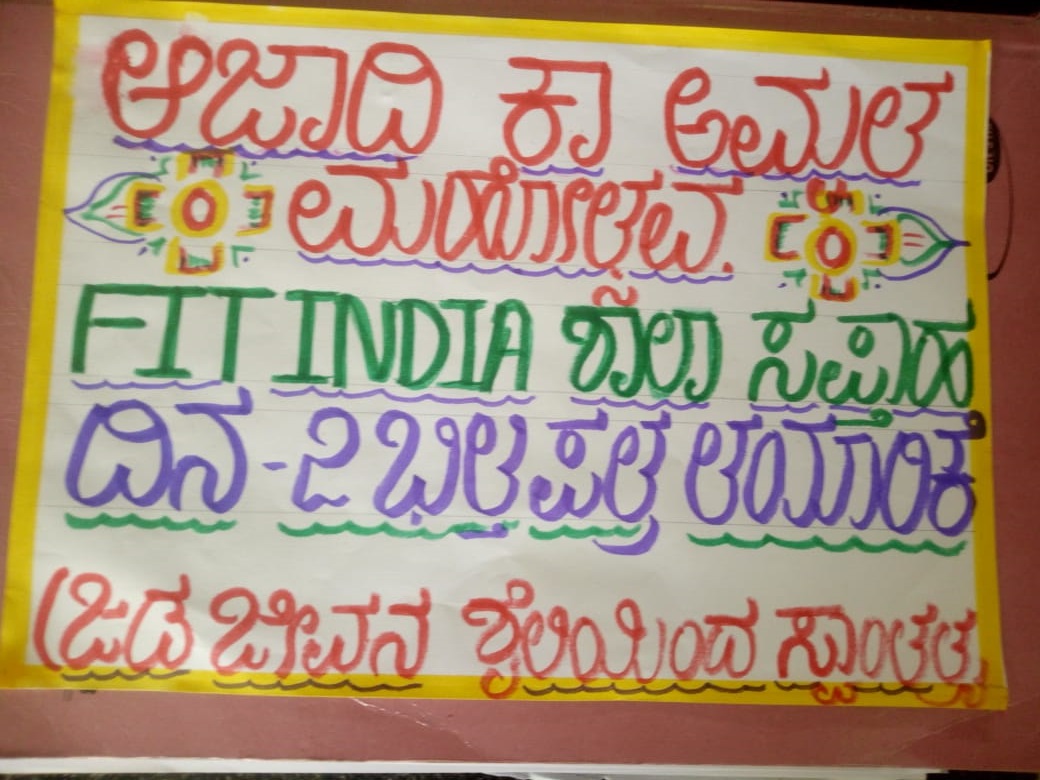 ಆಜಾದಿ ಕಾ ಅಮೃತ
ಮಹೋತ್ಸವ.
FIT INDIA ಶಾಲಾ ಸಪ್ತಾಹ
ದಿನ-೨ ಭಿತ್ತಿಪತ್ರ ತಯಾರಿಕೆ
(ಜಡ ಜೀವನ ಶೈಲಿಯಿಂದ ಸ್ವಾತಂತ್ರ್ಯ